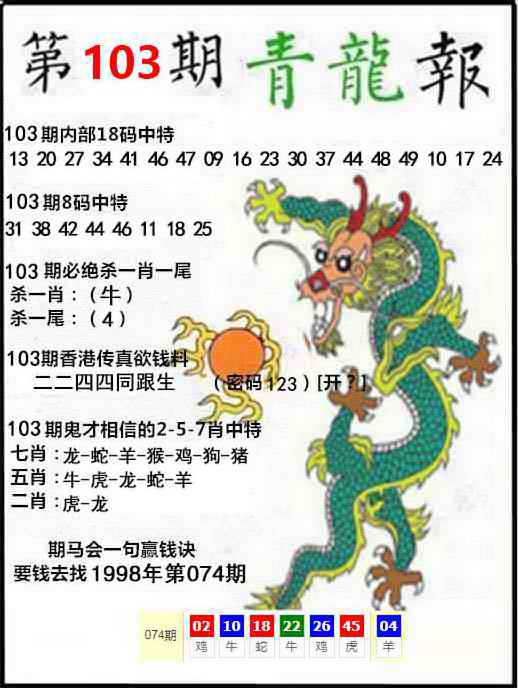 第103期青龍報
103期内部18码中特
13 20 27 34 41 46 47 09 16 23 30 37 44 48 49 10 17 24
103期8码中特
31 38 42 44 46 11 18 25
103期必绝杀一肖一尾
杀一肖：（牛）
杀一尾：（4）
103期香港传真欲钱料
二二四四同跟生 （密码123）[开？]
103期鬼才相信的2-5-7肖中特
七肖：龙-蛇-羊-猴-鸡-狗-猪
五肖：牛-虎-龙-蛇-羊
二肖：虎-龙
期马会一句赢钱诀
要钱去找1998年第074期
074期 02 10 18 22 26 45 04
鸡 牛 蛇 牛 鸡 虎 羊